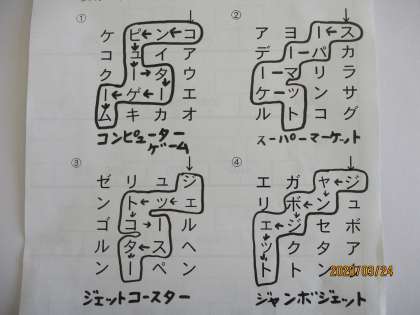 ①
ケ ピ ン コ
コ ュ イ ア
ク ー タ ウ
ー ゲ ー エ
ム キ カ オ
コンピューター
ゲーム
②
ア ヨ ー ス
デ ー パ カ
ー マ リ ラ
ケ ッ ン サ
ル ト コ グ
スーパーマーケット
③
ゼ リ ュ ジ
ン ト ッ ェ
ゴ コ ー ル
ル タ ス ヘ
ン ー ペ ン
ジェットコースター
④
エ ガ ャ ジ
リ ボ ン ュ
ェ ジ セ ボ
ッ ク タ ア
ト ト ン
ジャンボジェット
2020/03/24